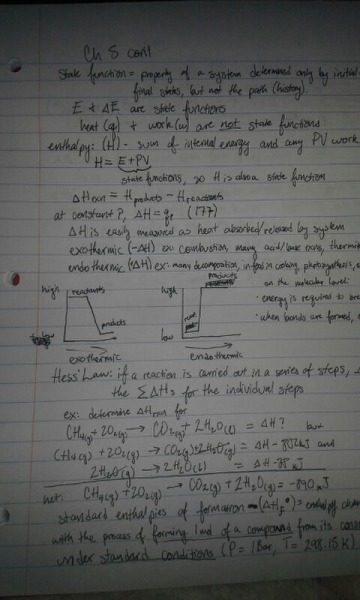 Ch 5 cont
State function = property of a system determined only by initial
final states, but not the path (history).
E + ΔE are state functions
heat (q) + work (w) are not state functions
enthalpy: (H) - sum of internal energy and any PV work
H = E + PV
state functions, so H is also a state function
ΔH rxn = H products - H reactants
at constant P, ΔH = qp (177)
ΔH is easily measured as heat absorbed/released by system
exothermic (-ΔH) ex: combustion, many acid/base rxns, thermite
endothermic (+ΔH) ex: many decomposition, cooking, photosynthesis,
on the molecular level:
energy is required to
when bonds are formed,
high
reactants
products
low
exothermic
high
products
low
endothermic
Hess' Law: if a reaction is carried out in a series of steps,
the ΣΔHs for the individual steps
ex: determine ΔH rxn for
CH4(g) + 2O2(g) → CO2(g) + 2H2O(l) = ΔH? but
CH4(g) + 2O2(g) → CO2(g) + 2H2O(g) = ΔH - 802 kJ and
2H2O(g) → 2H2O(l) = ΔH - 88 kJ
net: CH4(g) + 2O2(g) → CO2(g) + 2H2O(l) = -890 kJ
standard enthalpies of formation - (ΔHf°) =
with the process of forming 1 mol of a compound from its
under standard conditions (P = 1 bar, T = 298.15 K)